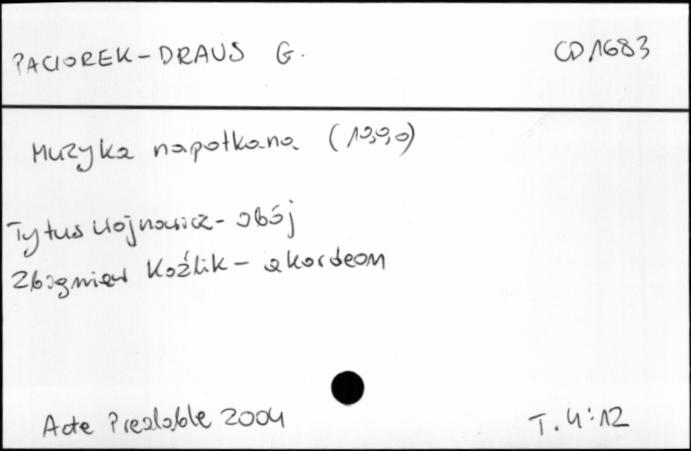 PACIOREK-DRAUS G. CD 1683
Muzyka napotkana (1990)
Tytus Wojnowicz - obój
Zbigniew Koźlik - akordeon
Acte Prealable 2004 T. 4:12